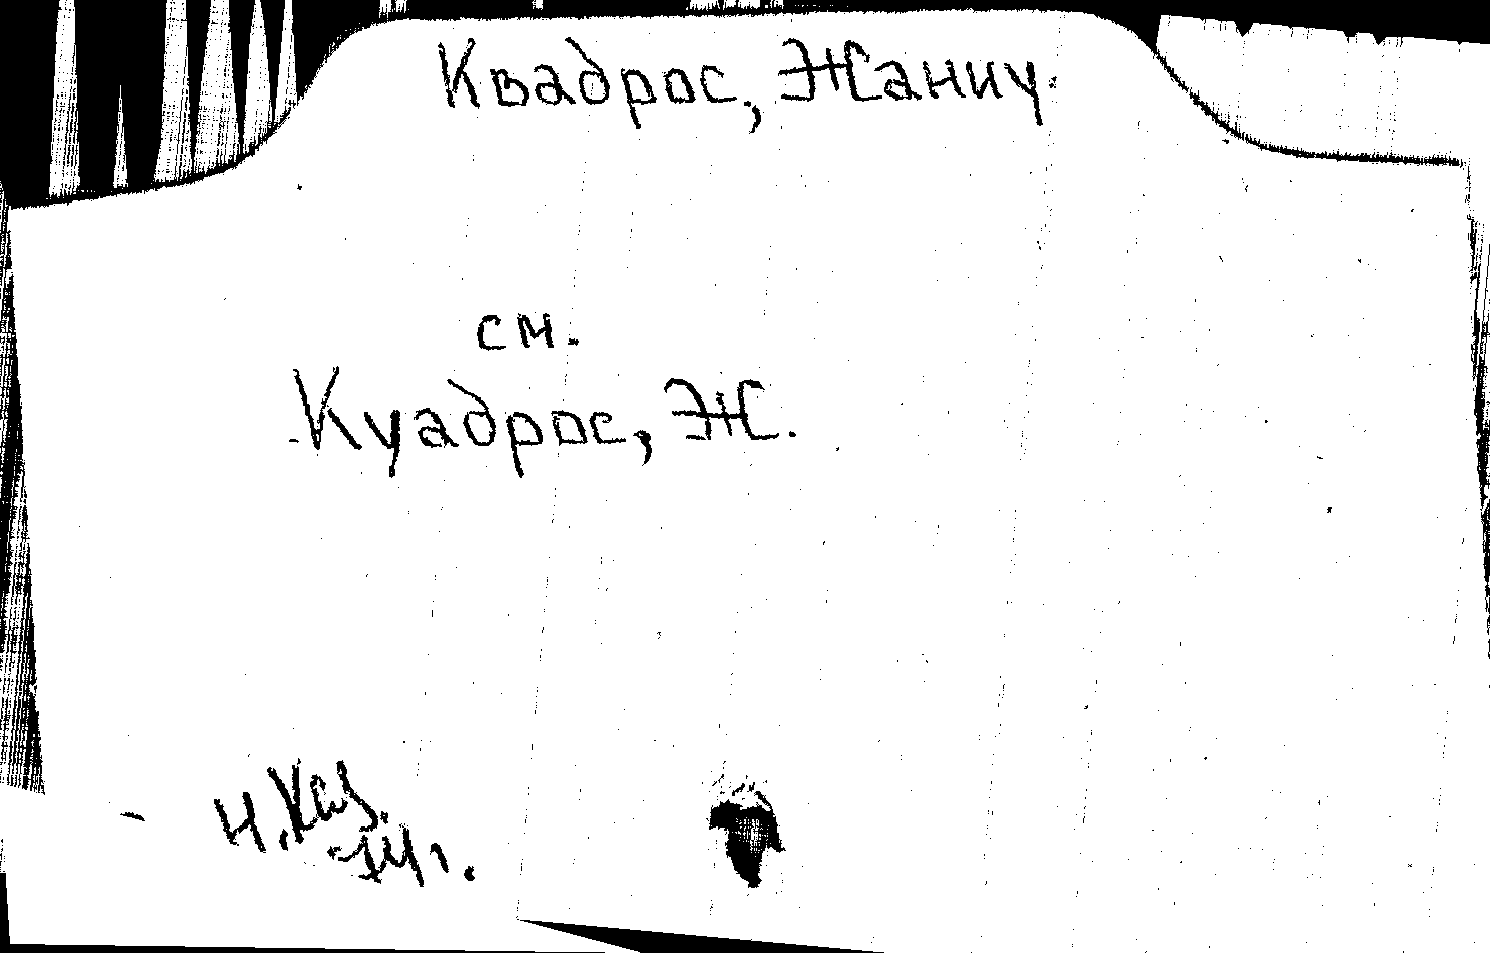 Квадрос, Жаниу.
см.
Куадрос, Ж.